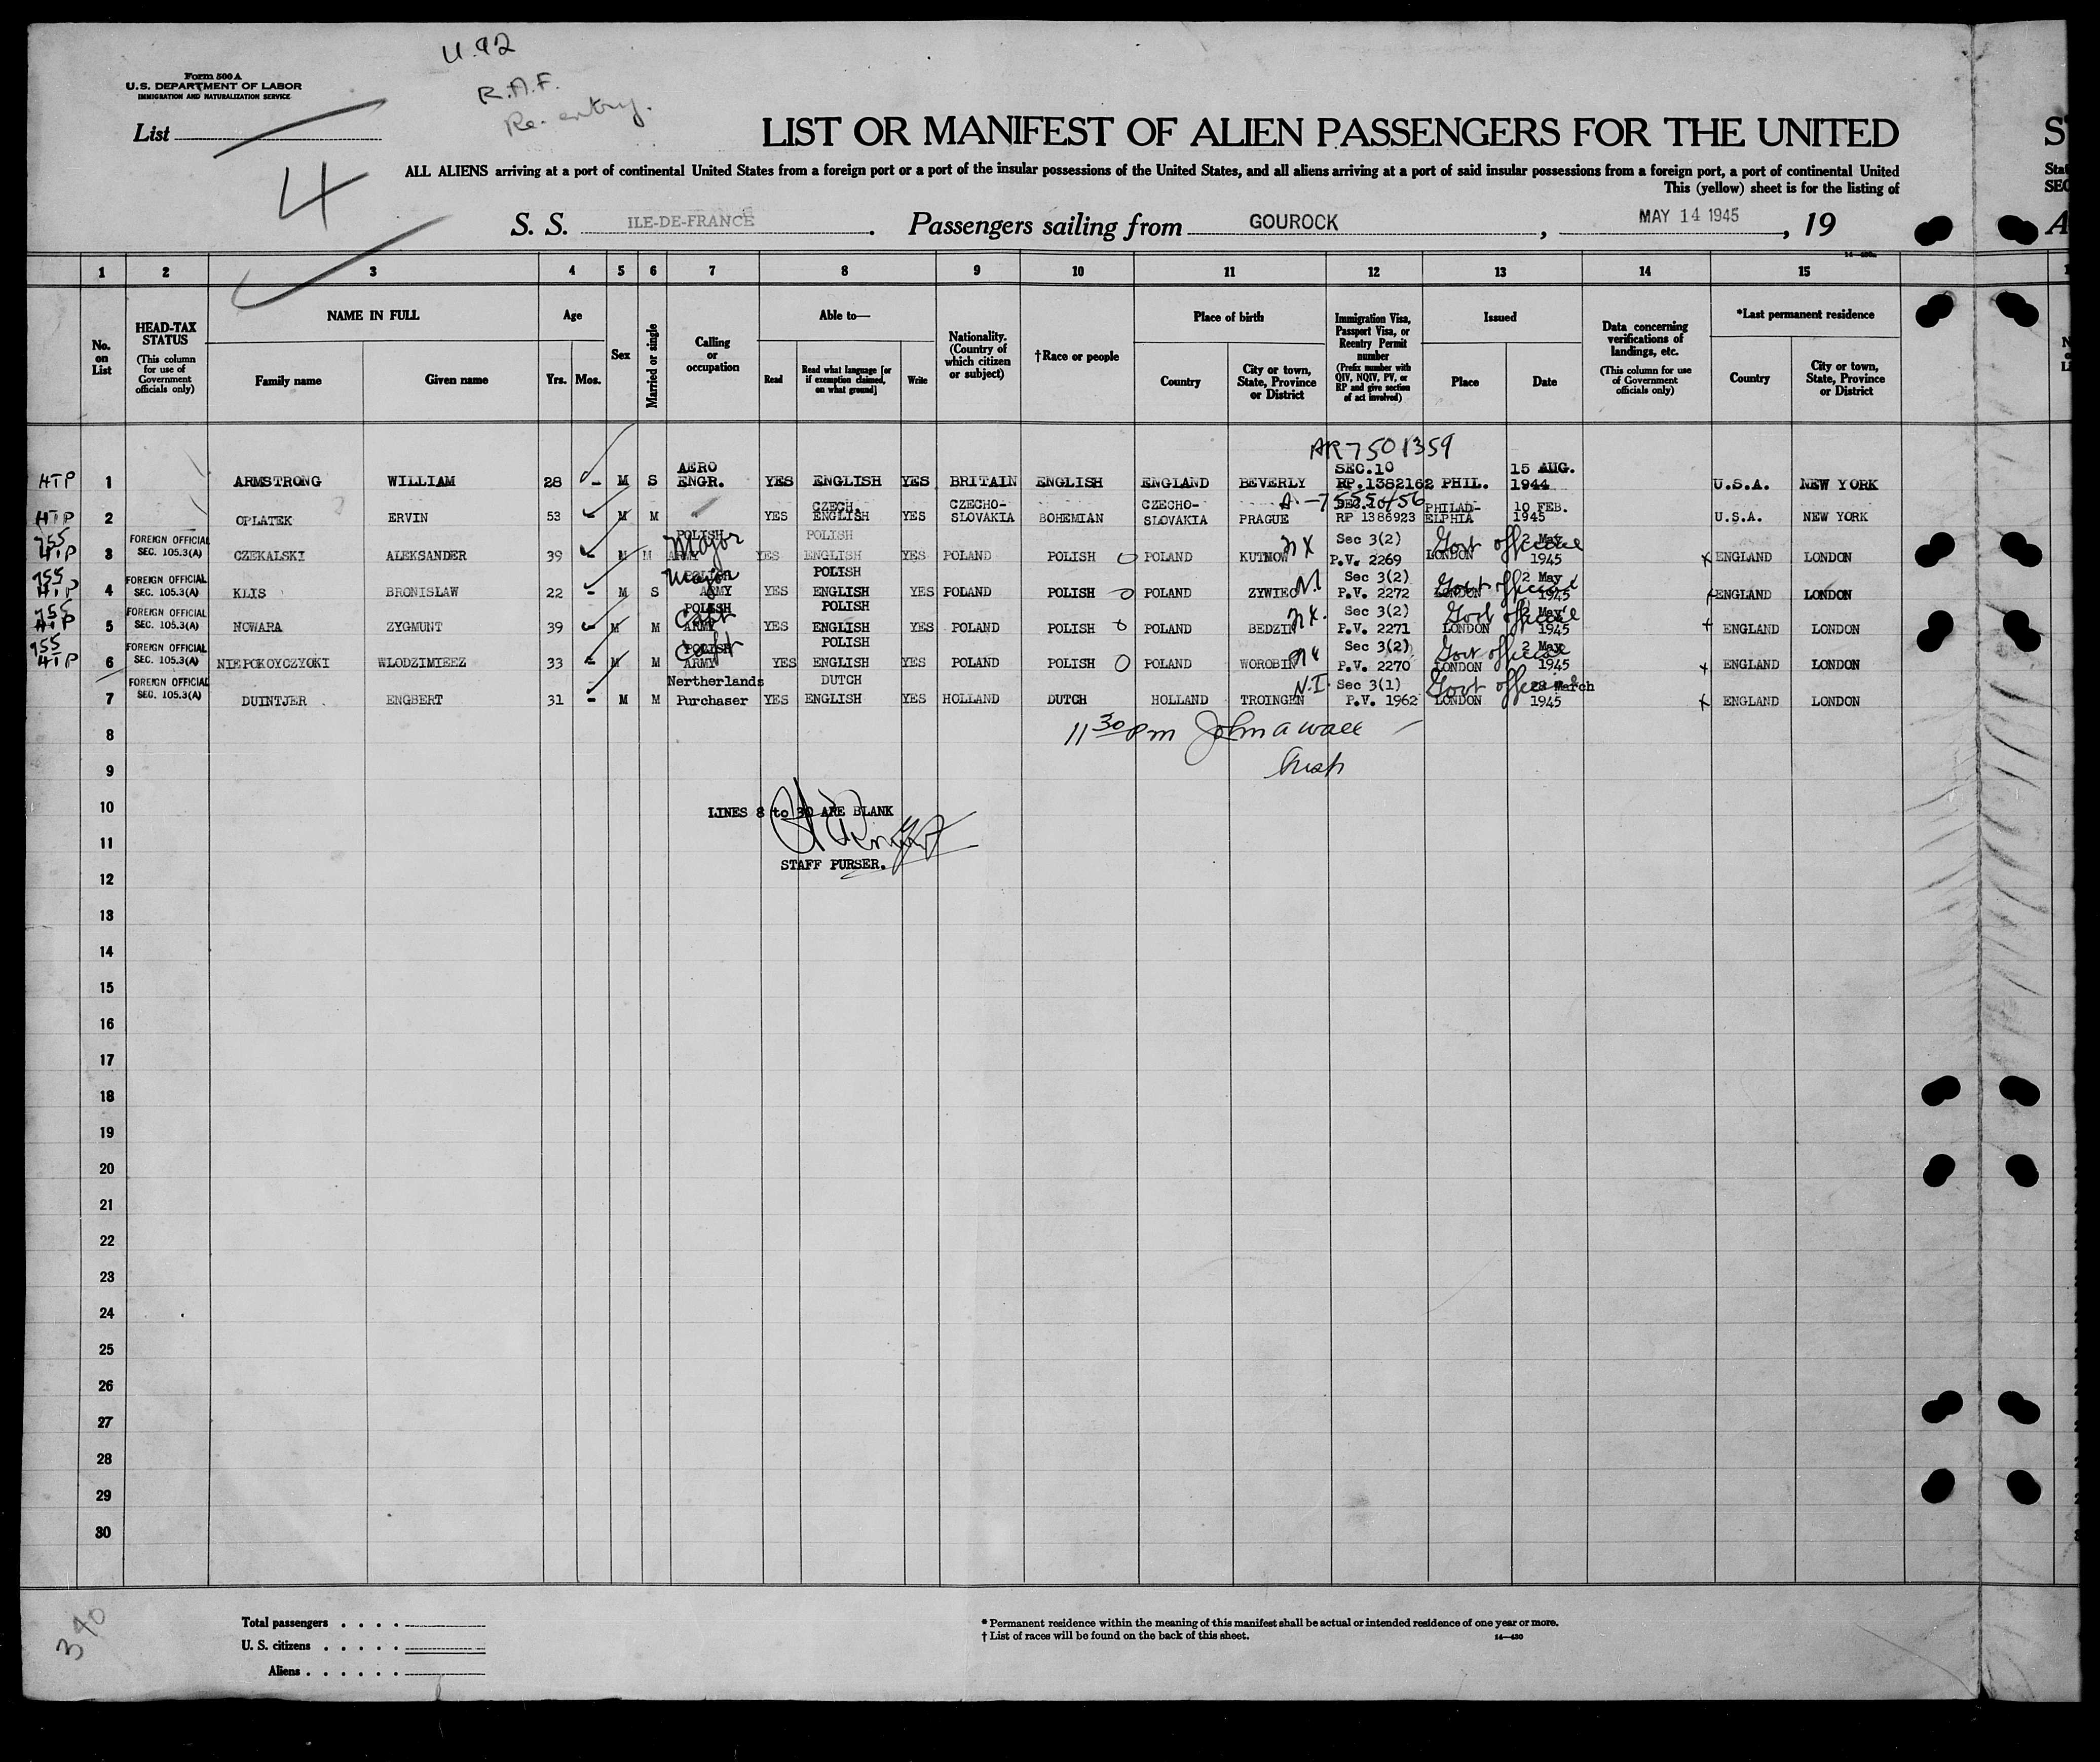 U.92
R.A.F.
Re. entry.
Form 500 A
U.S. DEPARTMENT OF LABOR
IMMIGRATION AND NATURALIZATION SERVICE
List
4
LIST OR MANIFEST OF ALIEN PASSENGERS FOR THE UNITED
ALL ALIENS arriving at a port of continental United States from a foreign port or a port of the insular possessions of the United States, and all aliens arriving at a port of said insular possessions from a foreign port, a port of continental United
This (yellow) sheet is for the listing of
S. S. ILE-DE-FRANCE . Passengers sailing from GOUROCK , MAY 14 1945 , 19
1 2 3 4 5 6 7 8 9 10 11 12 13 14 15
No. on List
HEAD-TAX STATUS (This column for use of Government officials only)
NAME IN FULL Family name Given name
Age Yrs. Mos.
Sex
Married or single
Calling or occupation
Able to— Read Read what language [or if exemption claimed, on what ground] Write
Nationality. (Country of which citizen or subject)
†Race or people
Place of birth Country City or town, State, Province or District
Immigration Visa, Passport Visa, or Reentry Permit number (Prefix number with QIV, NQIV, PV, or RP and give section of act involved)
Issued Place Date
Data concerning verifications of landings, etc. (This column for use of Government officials only)
*Last permanent residence Country City or town, State, Province or District
AR7501359
HTP 1 ARMSTRONG WILLIAM 28 - M S AERO ENGR. YES ENGLISH YES BRITAIN ENGLISH ENGLAND BEVERLY SEC.10 RP.1382162 PHIL. 15 AUG. 1944 U.S.A. NEW YORK
A-7555456
HTP 2 OPLATEK ERVIN 53 - M M " YES CZECH. ENGLISH YES CZECHO-SLOVAKIA BOHEMIAN CZECHO-SLOVAKIA PRAGUE SEC.10 RP 1386923 PHILAD-ELPHIA 10 FEB. 1945 U.S.A. NEW YORK
755 HTP 3 FOREIGN OFFICIAL SEC. 105.3(A) CZEKALSKI ALEKSANDER 39 M M POLISH ARMY Major YES POLISH ENGLISH YES POLAND POLISH POLAND KUTNOW Sec 3(2) P.V. 2269 LONDON Govt official 2 May 1945 ENGLAND LONDON
755 HTP 4 FOREIGN OFFICIAL SEC. 105.3(A) KLIS BRONISLAW 22 - M S POLISH ARMY Major YES POLISH ENGLISH YES POLAND POLISH POLAND ZYWIEC Sec 3(2) P.V. 2272 LONDON Govt official 2 May 1945 ENGLAND LONDON
755 HTP 5 FOREIGN OFFICIAL SEC. 105.3(A) NOWARA ZYGMUNT 39 - M M POLISH ARMY Capt YES POLISH ENGLISH YES POLAND POLISH POLAND BEDZIN Sec 3(2) P.V. 2271 LONDON Govt official 2 May 1945 ENGLAND LONDON
755 HTP 6 FOREIGN OFFICIAL SEC. 105.3(A) NIEPOKOYCZYOKI WLODZIMIEEZ 33 - M M POLISH ARMY Capt YES POLISH ENGLISH YES POLAND POLISH POLAND WOROBIN Sec 3(2) P.V. 2270 LONDON Govt official 2 May 1945 ENGLAND LONDON
7 FOREIGN OFFICIAL SEC. 105.3(A) DUINTJER ENGBERT 31 - M M Nertherlands Purchaser YES DUTCH ENGLISH YES HOLLAND DUTCH HOLLAND TROINGEN N.I. Sec 3(1) P.V. 1962 LONDON Govt official March 1945 ENGLAND LONDON
8
11 30 pm John a wall
9
Insp
10
LINES 8 to 30 ARE BLANK
11
STAFF PURSER.
12
13
14
15
16
17
18
19
20
21
22
23
24
25
26
27
28
29
30
340
Total passengers
U. S. citizens
Aliens
* Permanent residence within the meaning of this manifest shall be actual or intended residence of one year or more.
† List of races will be found on the back of this sheet.
14—430